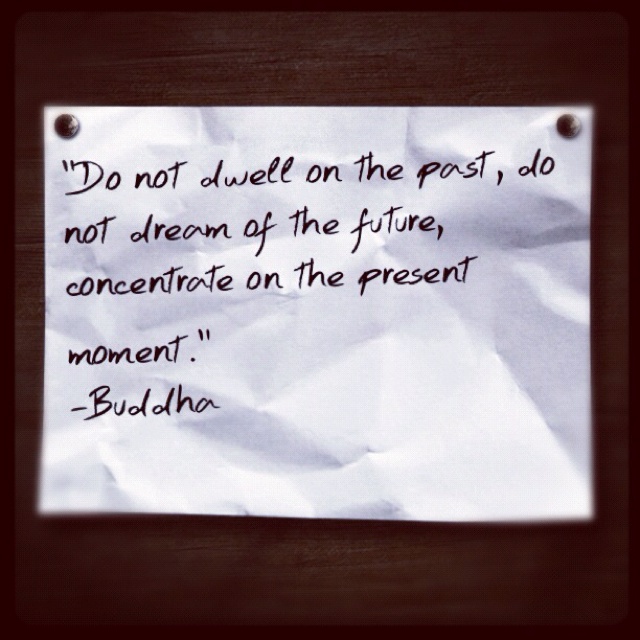 "Do not dwell on the past, do
not dream of the future,
concentrate on the present
moment."
-Buddha